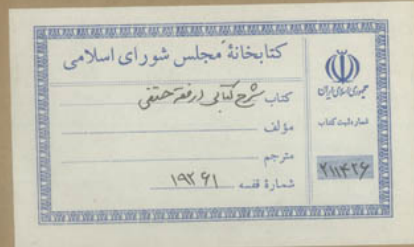 کتابخانهٔ مجلس شورای اسلامی
کتاب شرح کتابی در فقه حنفی
مؤلف
مترجم
شمارهٔ قفسه ۱۹۲۶۱
جمهوری اسلامی ایران
شماره ثبت کتاب
۲۱۱۴۲۶